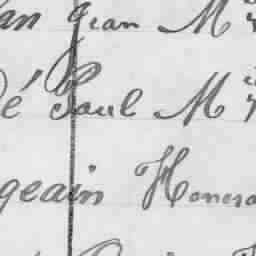 an Jean M
é Paul M
geain Honora